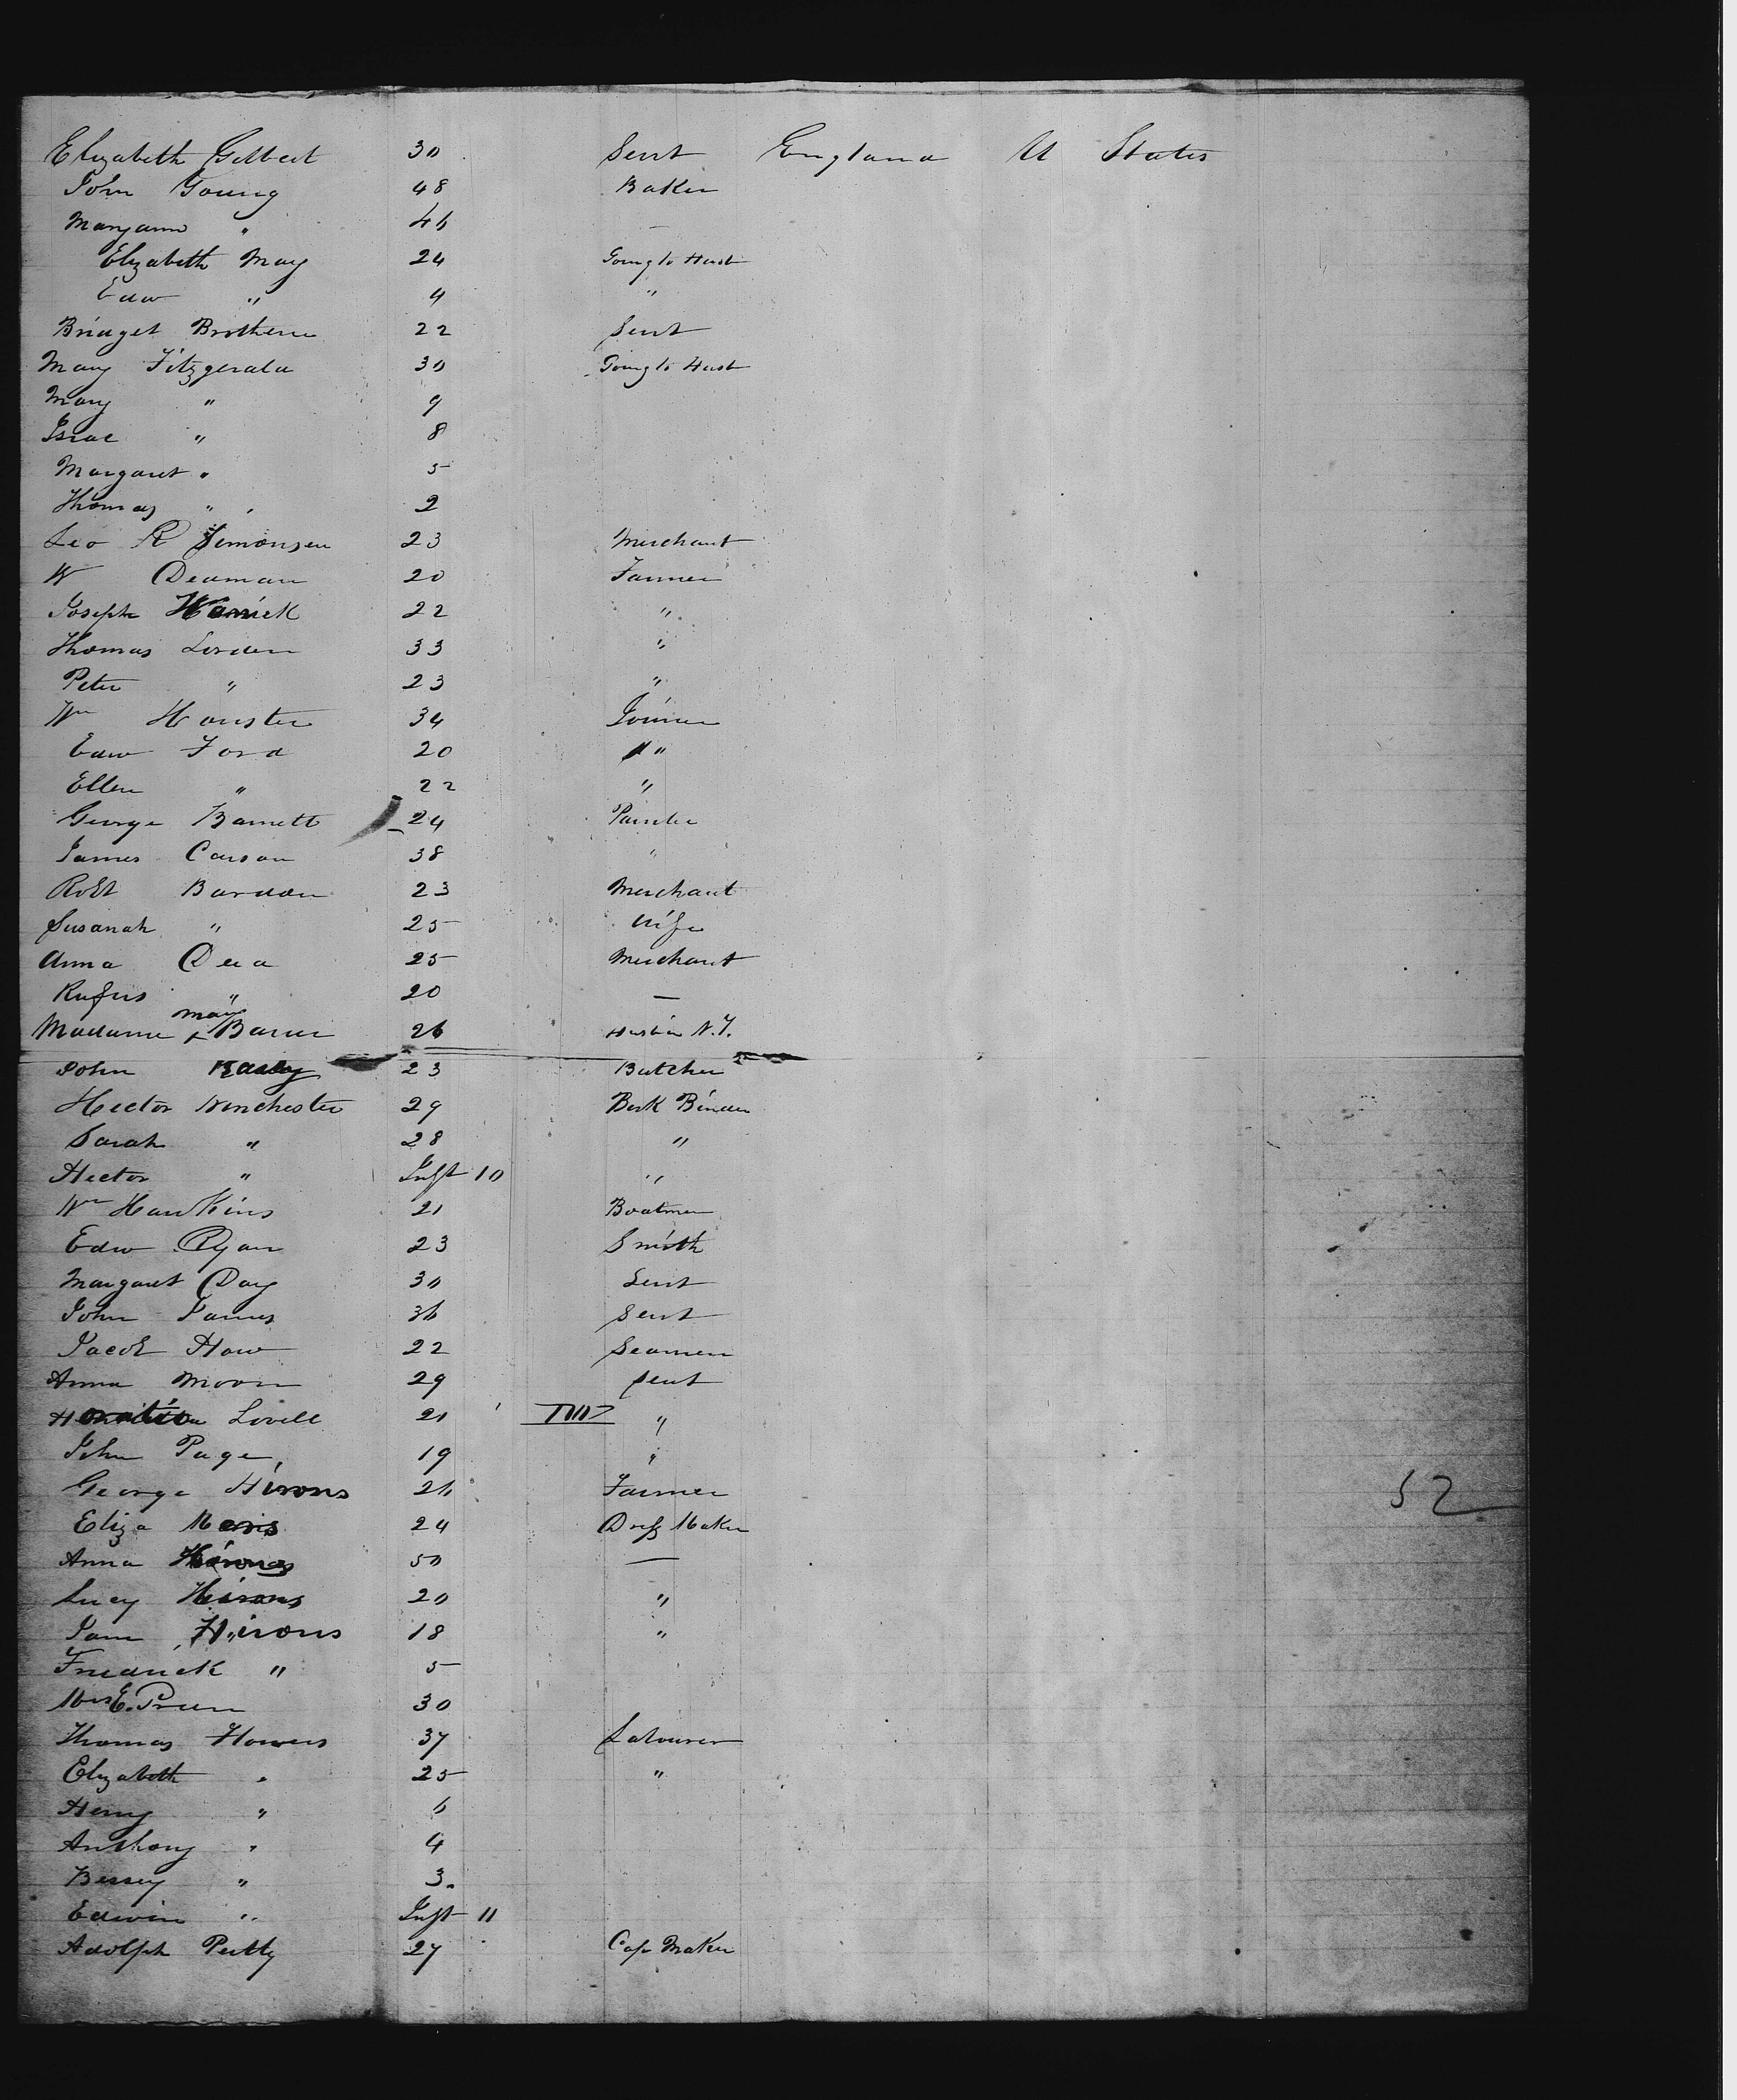 Elizabeth Gilbert 30 Servt England U States
John Young 48 Baker
Maryann " 46 —
Elizabeth May 24 Going to Husb
Edw " 4 "
Bridget Brothern 22 Servt
Mary Fitzgerald 30 Going to Husb
Mary " 9
Isaac " 8
Margaret " 5
Thomas " 2
Leo R Simonsen 23 Merchant
W Deaman 20 Farmer
Joseph 22 "
Thomas Lorden 33 "
Peter " 23 "
Wm 34 Joiner
Edw Ford 20 "
Ellen " 22 "
George Barnett 24 Painter
James Carson 38 "
Robt Bardon 23 Merchant
Susanah " 25 Wife
Anna 25 Merchant
Rufus " 20 —
Madame May 26 Husb in N.Y.
John 23 Butcher
Hector Winchester 29 Book Binder
Sarah " 28 "
Hector " Inft 10 "
Wm Hawkins 21 Boatmen
Edw Ryan 23 Smith
Margaret Day 30 Servt
John James 36 Servt
Jacob How 22 Seamen
Anna Moon 29 Servt
Lovell 21 "
John Page 19 "
George Hirons 26 Farmer
52
Eliza 24 Dress Maker
Anna Hirons 50 —
Lucy Hirons 20 "
Jane Hirons 18 "
Fredrick " 5
Mrs E. 30
Thomas Howers 37 Labourer
Elizabeth " 25 "
Henry " 6
Anthony " 4
Bessey " 3
Edwin " Inft 11
Adolph 27 Cap Maker